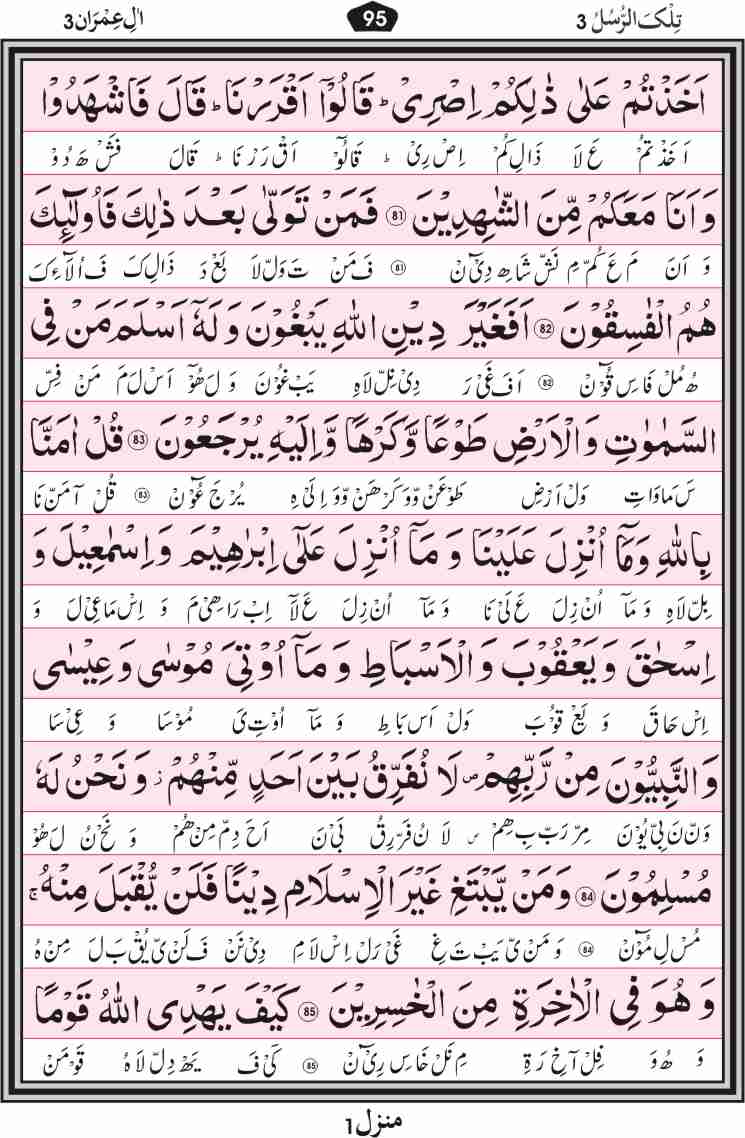 تِلْکَ الرُّسُلُ 3
95
اٰلِ عِمْرَان 3
اَخَذْتُمْ عَلٰی ذٰلِکُمْ اِصْرِیْ ؕ قَالُوْۤا اَقْرَرْنَا ؕ قَالَ فَاشْهَدُوْا
اَخَذْ تُمْ عَ لَا ذَالِ کُمْ اِصْ رِیْ ؕ قَالُوْٓ اَقْ رَرْ نَا ؕ قَالَ فَشْ هَ دُوْ
وَ اَنَا مَعَکُمْ مِّنَ الشّٰهِدِیْنَ 81 فَمَنْ تَوَلّٰی بَعْدَ ذٰلِکَ فَاُولٰٓئِکَ
وَ اَنَ مَ عَ کُمْ مِّ نَشْ شَا هِ دِیْٓ نْ 81 فَ مَنْ تَ وَلْ لَا بَعْ دَ ذَالِ کَ فَ اُلَآءِ کَ
هُمُ الْفٰسِقُوْنَ 82 اَفَغَیْرَ دِیْنِ اللّٰهِ یَبْغُوْنَ وَ لَهٗۤ اَسْلَمَ مَنْ فِی
هُ مُلْ فَاسِ قُوْٓ نْ 82 اَ فَ غَیْ رَ دِیْ نِلْ لَاهِ یَبْ غُوْنَ وَ لَ هُوْٓ اَسْ لَ مَ مَنْ فِسْ
السَّمٰوٰتِ وَ الْاَرْضِ طَوْعًا وَّ کَرْهًا وَّ اِلَیْهِ یُرْجَعُوْنَ 83 قُلْ اٰمَنَّا
سَ مَاوَاتِ وَلْ اَرْضِ طَوْ عَنْ وَّ وَ کَرْ هَنْ وَّ وَ اِلَیْ هِ یُرْ جَ عُوْٓ نْ 83 قُلْ آمَنْ نَا
بِاللّٰهِ وَ مَاۤ اُنْزِلَ عَلَیْنَا وَ مَاۤ اُنْزِلَ عَلٰۤی اِبْرٰهِیْمَ وَ اِسْمٰعِیْلَ وَ
بِلْ لَاهِ وَ مَآ اُنْ زِلَ عَ لَیْ نَا وَ مَآ اُنْ زِلَ عَ لَآ اِبْ رَاهِیْ مَ وَ اِسْ مَاعِیْ لَ وَ
اِسْحٰقَ وَ یَعْقُوْبَ وَ الْاَسْبَاطِ وَ مَاۤ اُوْتِیَ مُوْسٰی وَ عِیْسٰی
اِسْ حَاقَ وَ یَعْ قُوْبَ وَلْ اَسْ بَاطِ وَ مَآ اُوْتِ یَ مُوْسَا وَ عِیْ سَا
وَ النَّبِیُّوْنَ مِنْ رَّبِّهِمْ ۪ لَا نُفَرِّقُ بَیْنَ اَحَدٍ مِّنْهُمْ ؗ وَ نَحْنُ لَهٗ
وَ نْ نَ بِیْ یُوْنَ مِرْ رَبْ بِ هِمْ ۪ لَا نُ فَرْ رِقُ بَیْ نَ اَحَ دِمْ مِنْ هُمْ وَ نَحْ نُ لَ هُوْ
مُسْلِمُوْنَ 84 وَ مَنْ یَّبْتَغِ غَیْرَ الْاِسْلَامِ دِیْنًا فَلَنْ یُّقْبَلَ مِنْهُ ۚ
مُسْ لِ مُوْٓ نْ 84 وَ مَنْ یَّ یَبْ تَ غِ غَیْ رَلْ اِسْ لَامِ دِیْ نَنْ فَ لَنْ یُّ یُقْ بَ لَ مِنْ هُ
وَ هُوَ فِی الْاٰخِرَةِ مِنَ الْخٰسِرِیْنَ 85 کَیْفَ یَهْدِی اللّٰهُ قَوْمًا
وَ هُ وَ فِلْ آخِ رَةِ مِ نَلْ خَاسِ رِیْٓ نْ 85 کَیْ فَ یَهْ دِلْ لَاهُ قَوْ مَنْ
منزل 1